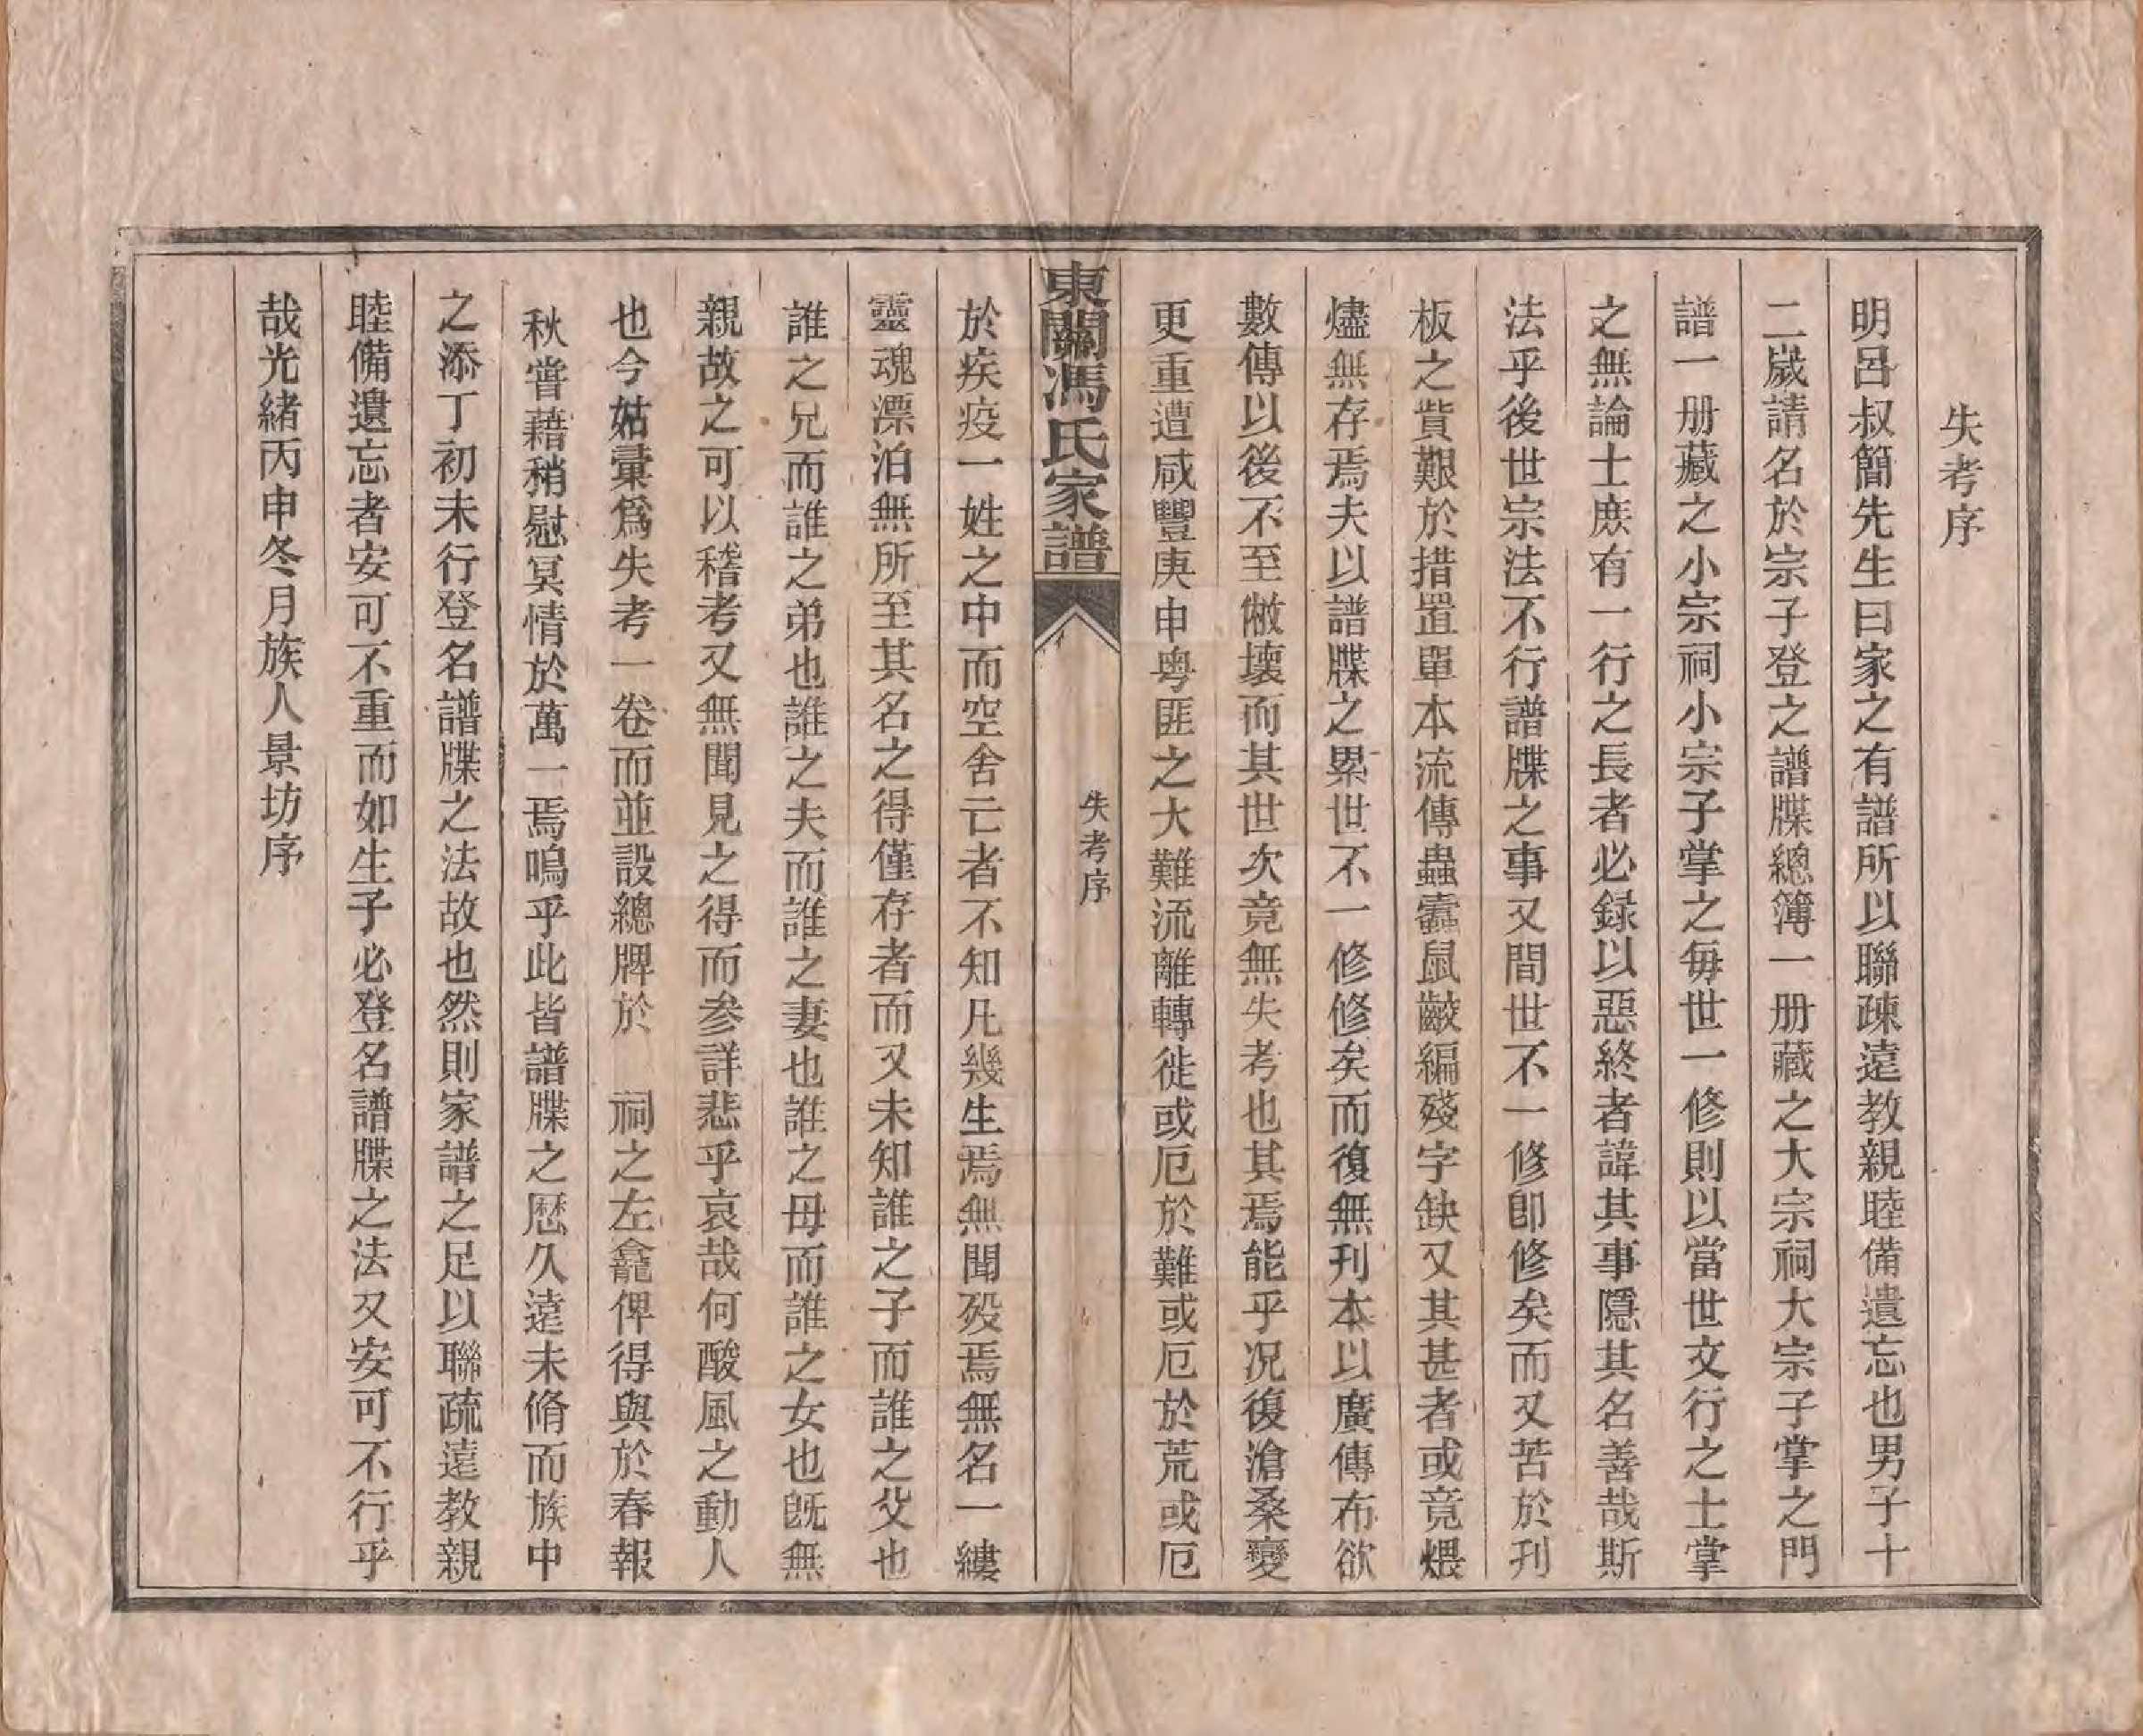 失考序
明呂叔簡先生曰家之有譜所以聯疎遠教親睦備遺忘也男子十
二歲請名於宗子登之譜牒總簿一册藏之大宗祠大宗子掌之門
譜一册藏之小宗祠小宗子掌之每世一修則以當世文行之士掌
之無論士庶有一行之長者必録以惡終者諱其事隱其名善哉斯
法乎後世宗法不行譜牒之事又間世不一修卽修矣而又苦於刋
板之貲艱於措置單本流傳蟲蠧鼠齩編殘字缺又其甚者或竟煨
燼無存焉夫以譜牒之累世不一修修矣而復無刋本以廣傳布欲
數傳以後不至敝壞而其世次竟無失考也其焉能乎况復滄桑變
更重遭咸豐庚申粤匪之大難流離轉徙或厄於難或厄於荒或厄
東關馮氏家譜
失考序
於疾疫一姓之中而空舍亡者不知凡幾生焉無聞歿焉無名一縷
靈魂漂泊無所至其名之得僅存者而又未知誰之子而誰之父也
誰之兄而誰之弟也誰之夫而誰之妻也誰之母而誰之女也旣無
親故之可以稽考又無聞見之得而参詳悲乎哀哉何酸風之動人
也今姑彙爲失考一卷而並設總牌於　祠之左龕俾得與於春報
秋嘗藉稍慰冥情於萬一焉嗚乎此皆譜牒之厯久遠未脩而族中
之添丁初未行登名譜牒之法故也然則家譜之足以聯疏遠教親
睦備遺忘者安可不重而如生子必登名譜牒之法又安可不行乎
哉光緒丙申冬月族人景坊序